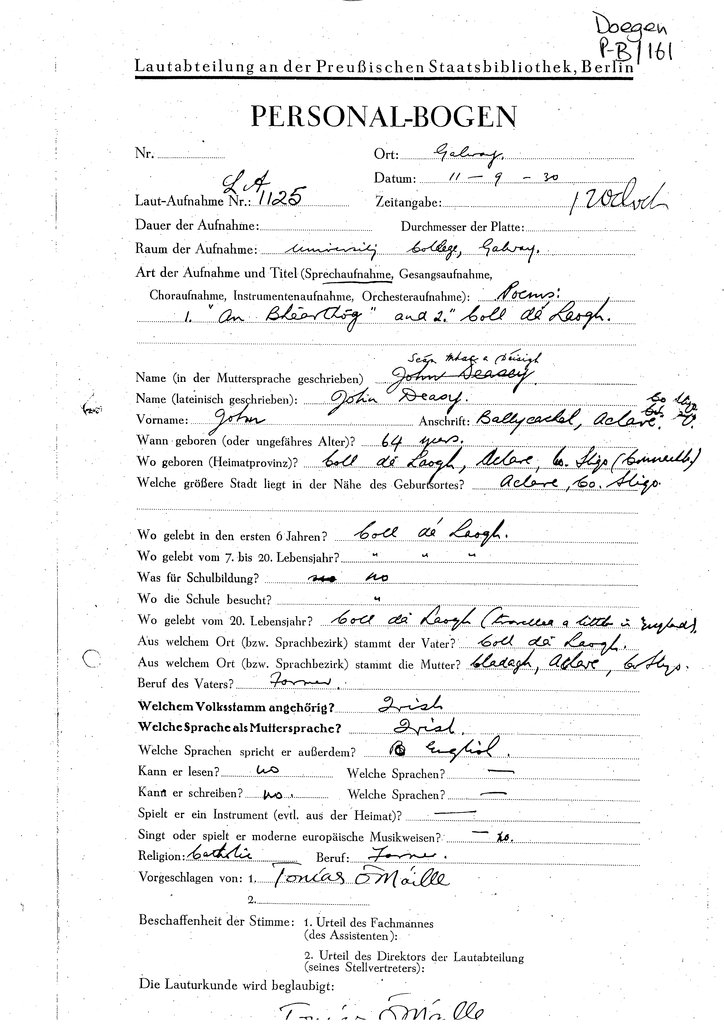 Doegen
P-B/161
Lautabteilung an der Preußischen Staatsbibliothek, Berlin
PERSONAL-BOGEN
Nr. Ort: Galway.
Datum: 11 - 9 - 30
Laut-Aufnahme Nr.: LA 1125 Zeitangabe:
Dauer der Aufnahme: Durchmesser der Platte:
Raum der Aufnahme: University College, Galway.
Art der Aufnahme und Titel (Sprechaufnahme, Gesangsaufnahme,
Choraufnahme, Instrumentenaufnahme, Orchesteraufnahme): Poems:
1. "An Bhéarthóg" and 2. "Coll dé Laogh.
Name (in der Muttersprache geschrieben) John Deasey
Name (lateinisch geschrieben): John Deasy.
Vorname: John Anschrift: Ballycackel, Aclare, Co. Sligo
Wann geboren (oder ungefähres Alter)? 64 years.
Wo geboren (Heimatprovinz)? Coll dé Laogh, Aclare, Co. Sligo (Connacht)
Welche größere Stadt liegt in der Nähe des Geburtsortes? Aclare, Co. Sligo.
Wo gelebt in den ersten 6 Jahren? Coll dé Laogh.
Wo gelebt vom 7. bis 20. Lebensjahr? " " "
Was für Schulbildung? no
Wo die Schule besucht? "
Wo gelebt vom 20. Lebensjahr? Coll dé Laogh (travelled a little in England).
Aus welchem Ort (bzw. Sprachbezirk) stammt der Vater? Coll dé Laogh.
Aus welchem Ort (bzw. Sprachbezirk) stammt die Mutter? Cladagh, Aclare, Co. Sligo.
Beruf des Vaters? Farmer.
Welchem Volksstamm angehörig? Irish
Welche Sprache als Muttersprache? Irish.
Welche Sprachen spricht er außerdem? English.
Kann er lesen? no Welche Sprachen? —
Kann er schreiben? no. Welche Sprachen? —
Spielt er ein Instrument (evtl. aus der Heimat)? —
Singt oder spielt er moderne europäische Musikweisen? — no.
Religion: Catholic Beruf: Farmer.
Vorgeschlagen von: 1. Tomás Ó Máille
2.
Beschaffenheit der Stimme: 1. Urteil des Fachmannes
(des Assistenten):
2. Urteil des Direktors der Lautabteilung
(seines Stellvertreters):
Die Lauturkunde wird beglaubigt:
Tomás Ó Máille